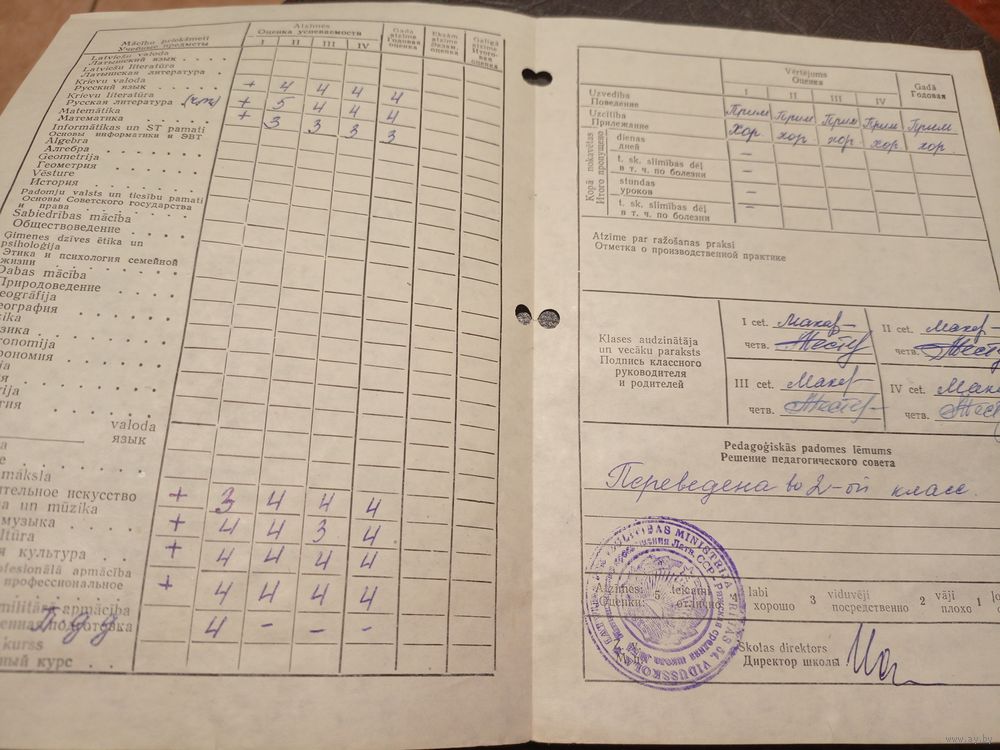 Mācību priekšmeti
Учебные предметы
Atzīmes
Оценка успеваемости
I II III IV
Gada
atzīme
Годовая
оценка
Eksām.
atzīme
Экзам.
оценка
Galīgā
atzīme
Итого-
вая
оценка
Latviešu valoda
Латышский язык
Latviešu literatūra
Латышская литература
Krievu valoda
Русский язык + 4 4 4 4
Krievu literatūra
Русская литература (чт) + 5 4 4 4
Matemātika
Математика + 3 3 3 3
Informātikas un ST pamati
Основы информатики и ЭВТ
Algebra
Алгебра
Ģeometrija
Геометрия
Vēsture
История
Padomju valsts un tiesību pamati
Основы Советского государства
и права
Sabiedrības mācība
Обществоведение
Ģimenes dzīves ētika un
psiholoģija
Этика и психология семейной
жизни
Dabas mācība
Природоведение
eogrāfija
еография
ika
изика
ronomija
рономия
ija
ия
rija
гия
valoda
язык
māksla
ительное искусство + 3 4 4 4
a un mūzika
музыка + 4 4 3 4
ltūra
я культура + 4 4 4 4
ofesionālā apmācība
профессиональное + 4 4 4 4
militārā apmācība
енная подготовка 4 - - -
kurss
ный курс
Vērtējums
Оценка
I II III IV
Gadā
Годовая
Uzvedība
Поведение Прим Прим Прим Прим Прим
Uzcītība
Прилежание хор хор хор хор хор.
Kopā nokavētas
Итого пропущено
dienas
дней –
t. sk. slimības dēļ
в т. ч. по болезни –
stundas
уроков
t. sk. slimības dēļ
в т. ч. по болезни –
Atzīme par ražošanas praksi
Отметка о производственной практике
Klases audzinātāja
un vecāku paraksts
Подпись классного
руководителя
и родителей
I cet.
четв.
II cet.
четв.
III cet.
четв.
IV cet.
четв.
Pedagoģiskās padomes lēmums
Решение педагогического совета
Переведена во 2-ой класс.
Atzīmes: 5 teicami 4 labi 3 viduvēji 2 vāji 1
Оценки: отлично хорошо посредственно плохо
Skolas direktors
Директор школы
www.ay.by